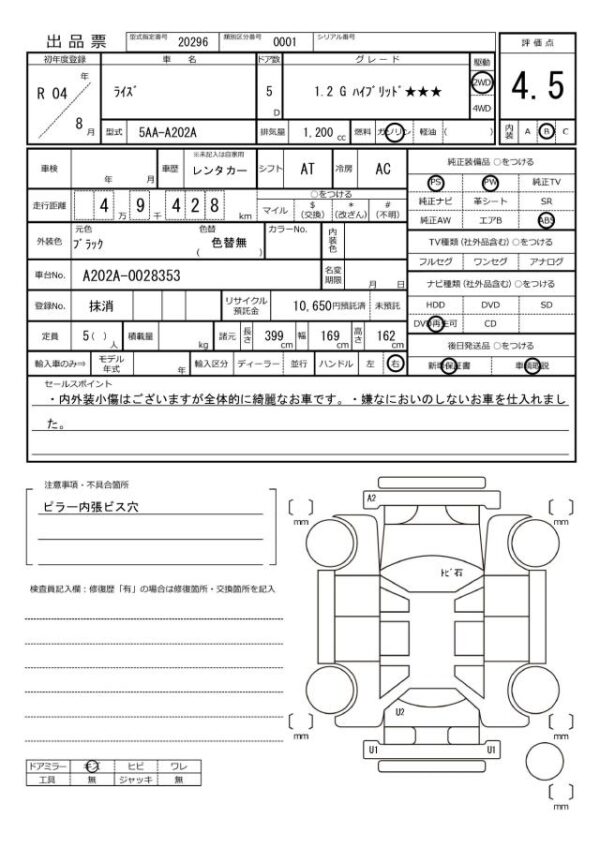 出品票 型式指定番号 20296 類別区分番号 0001 シリアル番号
評価点
4.5
内装 A B C
初年度登録 車名 ドア数 グレード 駆動
R 04 年 8 月 ライズ 5 D 1.2 G ハイブリッド★★★ 2WD 4WD
型式 5AA-A202A 排気量 1,200 cc 燃料 ガソリン 軽油 ( )
車検 年 月 車歴 ※未記入は自家用 レンタカー シフト AT 冷房 AC
走行距離 4 万 9 千 4 2 8 km ○をつける マイル $ (交換) * (改ざん) # (不明)
外装色 元色 ブラック 色替 色替無 ( ) カラーNo. 内装色
車台No. A202A-0028353 名変期限 月 日
登録No. 抹消 リサイクル預託金 10,650円預託済 未預託
定員 5( ) 人 積載量 kg 諸元 長さ 399 cm 幅 169 cm 高さ 162 cm
輸入車のみ⇒ モデル年式 年 輸入区分 ディーラー 並行 ハンドル 左 右
純正装備品 ○をつける
PS PW 純正TV
純正ナビ 革シート SR
純正AW エアB ABS
TV種類 (社外品含む) ○をつける
フルセグ ワンセグ アナログ
ナビ種類 (社外品含む) ○をつける
HDD DVD SD
DVD再生可 CD
後日発送品 ○をつける
新車保証書 車輌取説
セールスポイント
・内外装小傷はございますが全体的に綺麗なお車です。・嫌なにおいのしないお車を仕入れまし
た。
注意事項・不具合箇所
ピラー内張ビス穴
検査員記入欄：修復歴「有」の場合は修復箇所・交換箇所を記入
ドアミラー キズ ヒビ ワレ
工具 無 ジャッキ 無
A2
[ ] mm
[ ] mm
トビ石
U2
[ ] mm
[ ] mm
U1 U1
[ ] mm